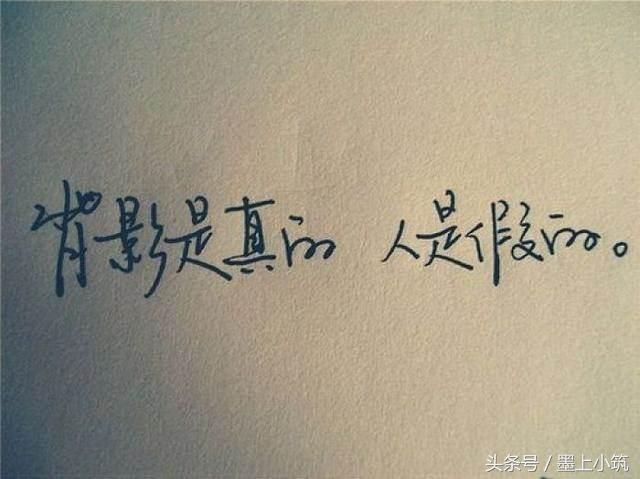 背影是真的 人是假的。
头条号 / 墨上小筑